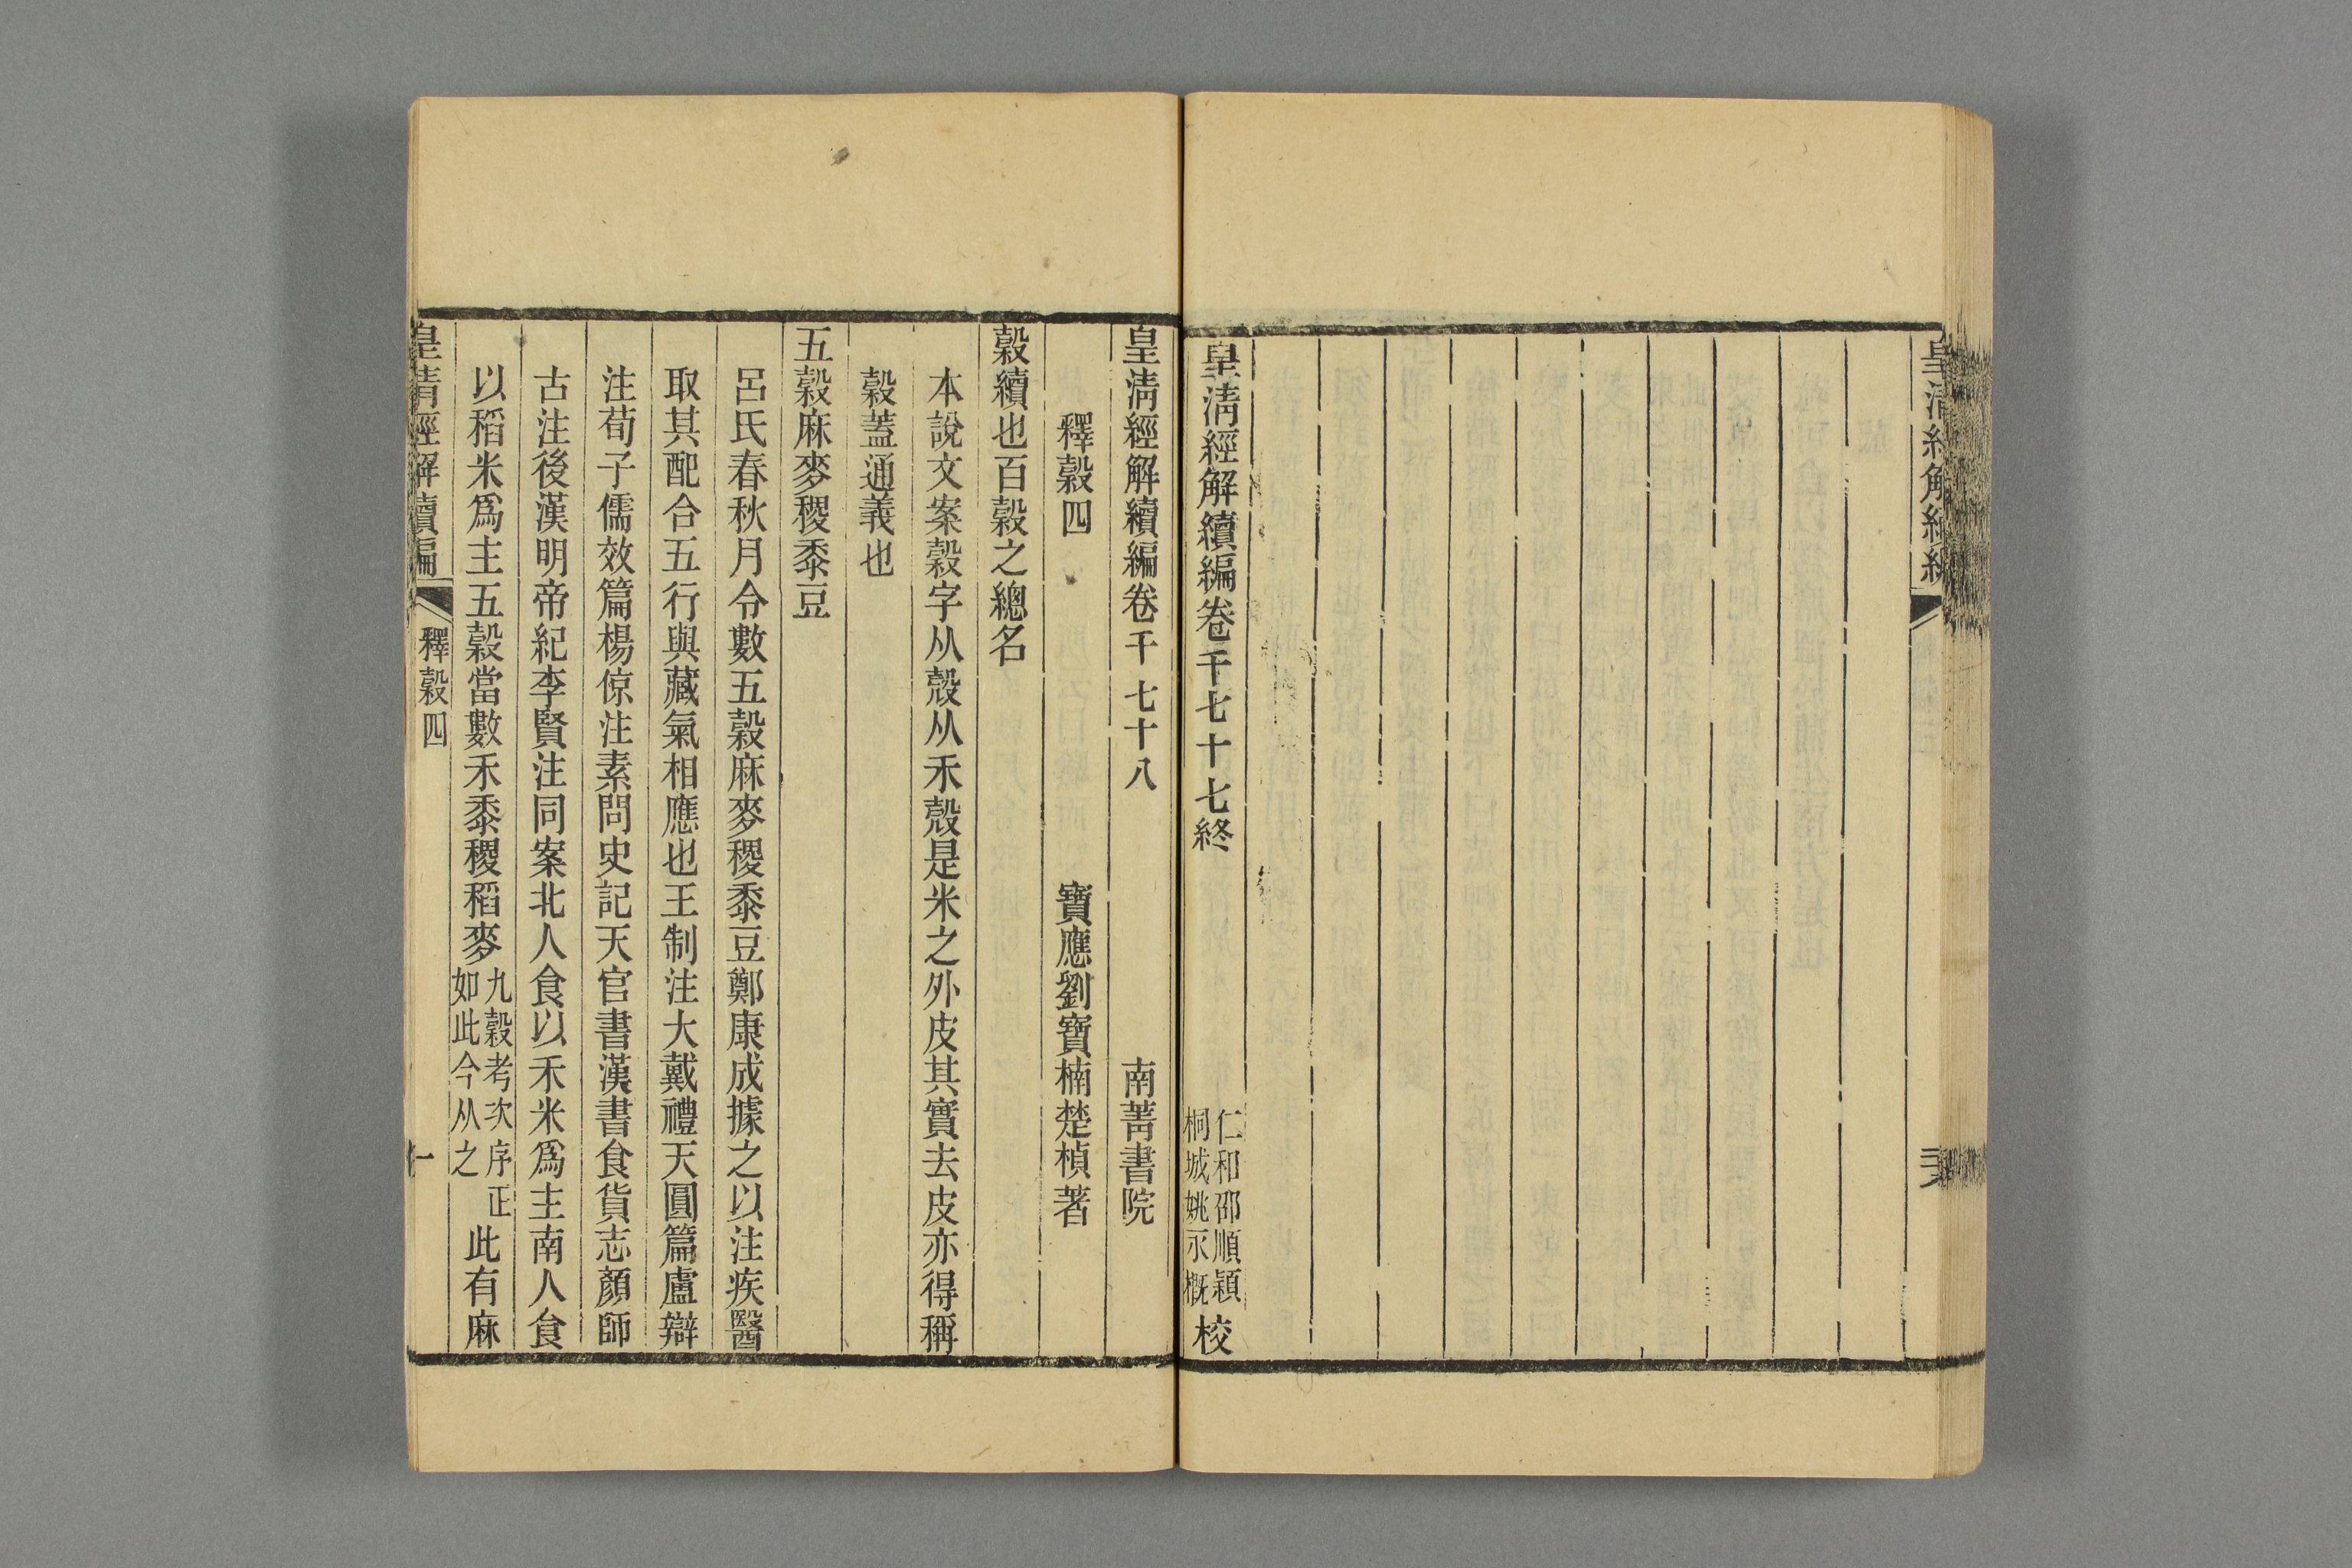 皇清經解續編
皇清經解續編卷千七十七終
仁和邵順頴
桐城姚永概
校
皇清經解續編卷千七十八
南菁書院
釋穀四
寶應劉寶楠楚楨著
穀續也百穀之總名
本說文案穀字从殼从禾殼是米之外皮其實去皮亦得稱
穀蓋通義也
五穀麻麥稷黍豆
呂氏春秋月令數五穀麻麥稷黍豆鄭康成據之以注疾醫
取其配合五行與藏氣相應也王制注大戴禮天圓篇盧辯
注荀子儒效篇楊倞注素問史記天官書漢書食貨志顏師
古注後漢明帝紀李賢注同案北人食以禾米爲主南人食
以稻米爲主五穀當數禾黍稷稻麥
九穀考次序正
如此今从之
此有麻
皇清經解續編
釋穀四
一